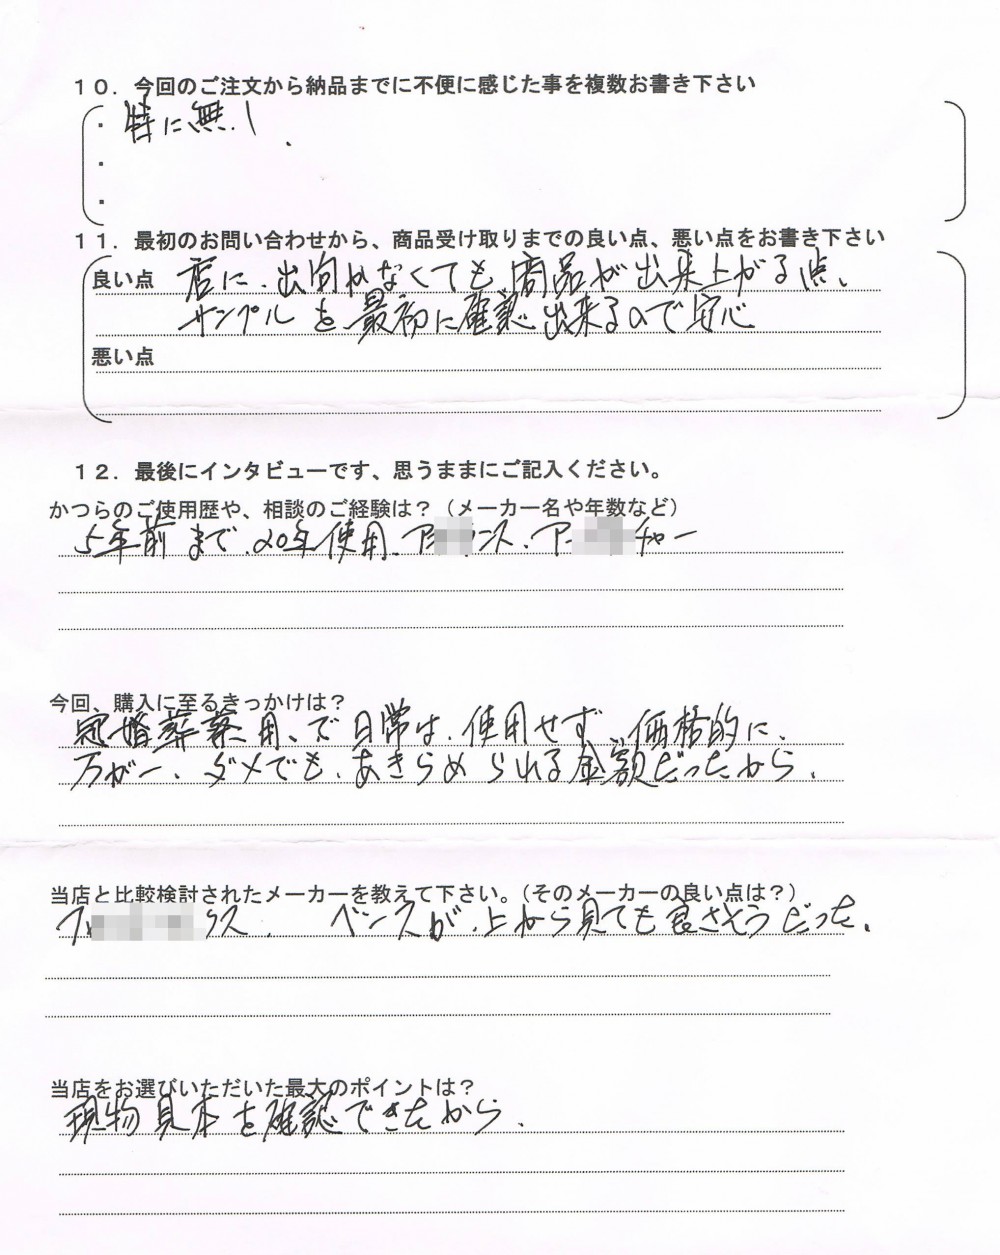 １０．今回のご注文から納品までに不便に感じた事を複数お書き下さい
・特に無し．
・
・
１１．最初のお問い合わせから、商品受け取りまでの良い点、悪い点をお書き下さい
良い点 店に、出向かなくても、商品が出来上がる点、
サンプルを最初に確認出来るので安心
悪い点
１２．最後にインタビューです、思うままにご記入ください。
かつらのご使用歴や、相談のご経験は？（メーカー名や年数など）
5年前まで、20年使用、ア ンス、アー チャー
今回、購入に至るきっかけは？
冠婚葬祭用、で日常は、使用せず、価格的に、
万が一、ダメでも、あきらめられる金額だったから、
当店と比較検討されたメーカーを教えて下さい。（そのメーカーの良い点は？）
クス． ベンスが、上から見ても良さそうだった。
当店をお選びいただいた最大のポイントは？
現物見本を確認できたから、